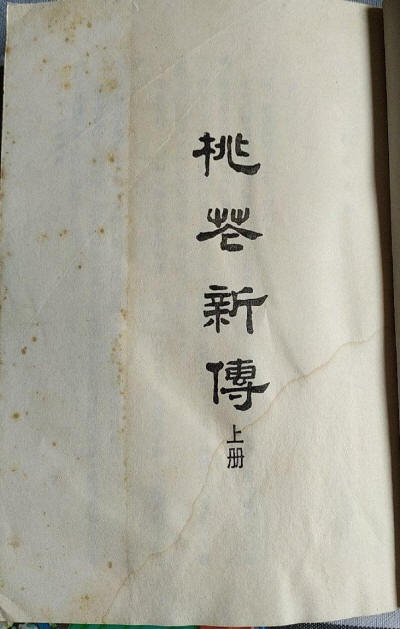 桃花新傳
上册